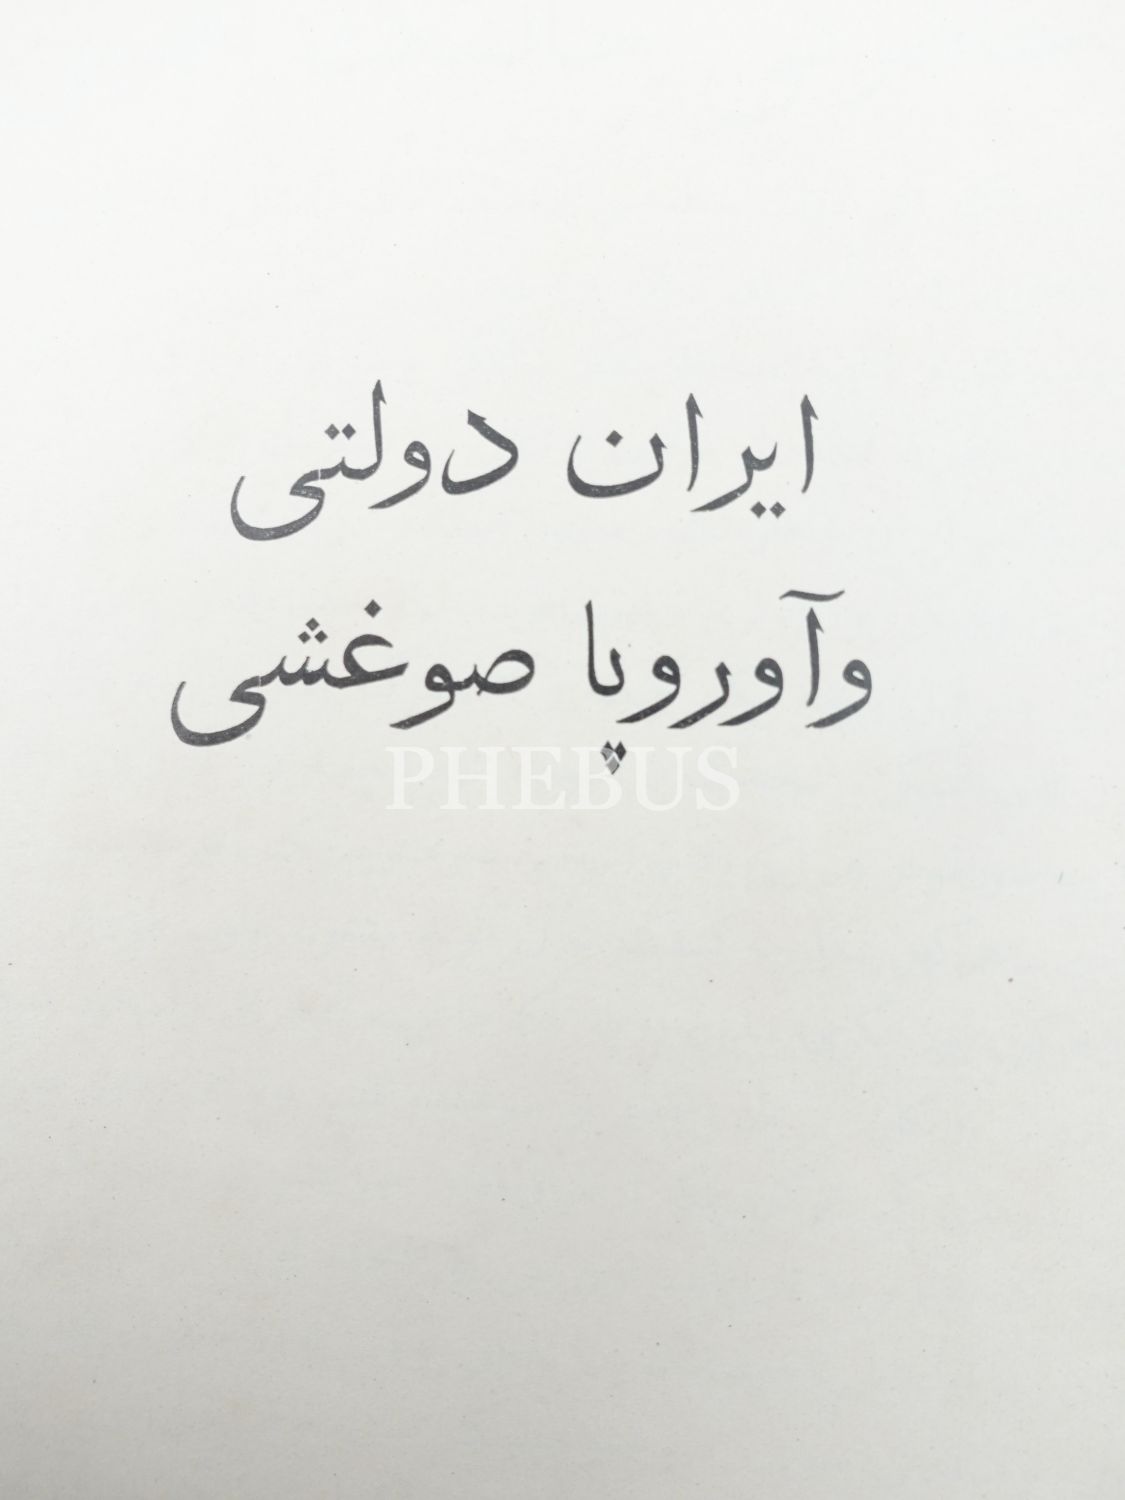 ایران دولتی
وآوروپا صوغشی
PHEBUS